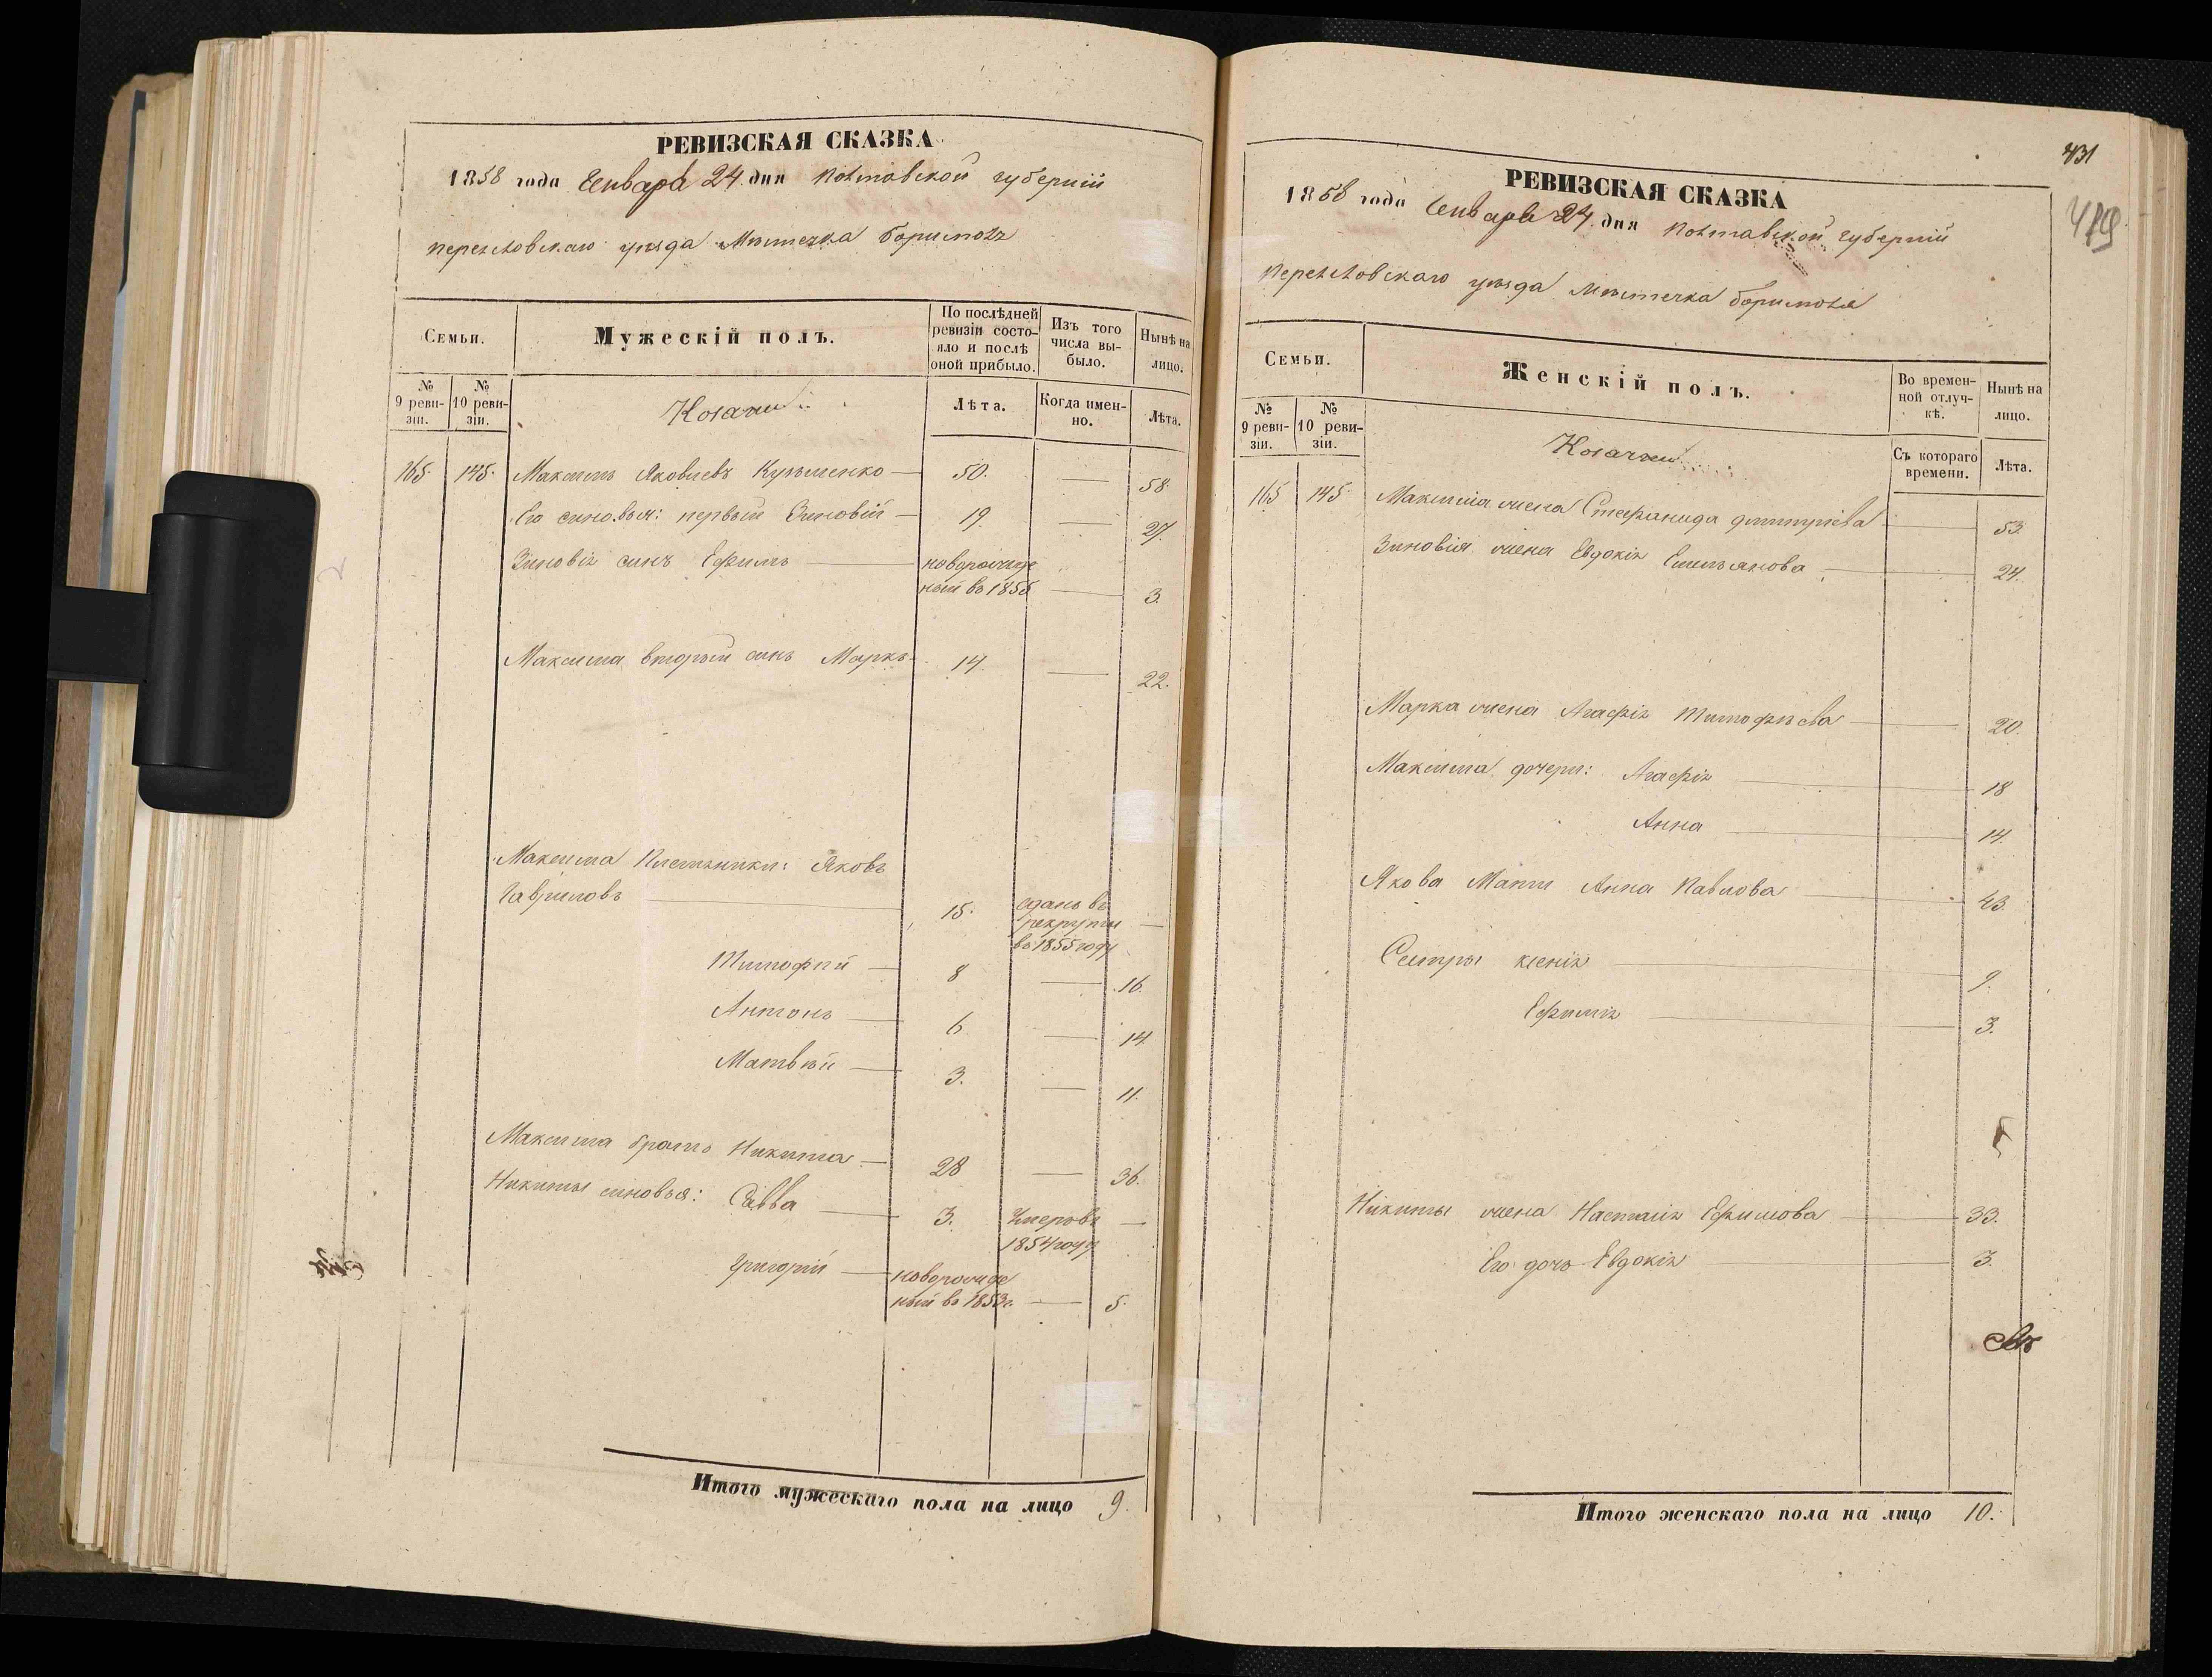 РЕВИЗСКАЯ СКАЗКА
1858 года Генваря 24 дня Полтавской губерніи
Переяловскаго уѣзда Мѣстечка Боришполя
Семьи.
Мужескій полъ.
По послѣдней ревизіи состояло и послѣ оной прибыло.
Изъ того числа выбыло.
Нынѣ на лицо.
№ 9 ревизіи.
№ 10 ревизіи.
Козачьи
Лѣта.
Когда именно.
Лѣта.
165. 145. Максимъ Яковлевъ Кузьменко 50. 58.
Его синовья: первый Зиновій 19. 27.
Зиновія синъ Ефимъ новорожде
ный въ 1855 3.
Максима вторый синъ Марко 14. 22.
Максима Племѣнники: Яковъ
Гавриловъ 15. сданъ въ
рекруты
въ 1855 году
Тимофѣй 8 16.
Антонъ 6. 14.
Матвѣй 3. 11.
Максима братъ Никита 28 36.
Никиты синовья: Савва 3. Умеръ въ
1854 году
Григорій новорожде
ный въ 1853 г. 5.
Итого мужескаго пола на лицо 9.
431
419
РЕВИЗСКАЯ СКАЗКА
1858 года Генваря 24 дня Полтавской губерніи
Переяловскаго уѣзда Мѣстечка Боришполя
Семьи.
Женскій полъ.
Во временной отлучкѣ.
Нынѣ на лицо.
№ 9 ревизіи.
№ 10 ревизіи.
Козачьи
Съ котораго времени.
Лѣта.
165 145. Максима жена Стефанида Дмитріева 53.
Зиновія жена Евдокія Емельянова 24.
Марка жена Агафія Тимофѣева 20.
Максима дочери: Агафія 18
Анна 14.
Якова Мати Анна Павлова 43
Сестры Ксенія 9.
Ефимія 3.
Никиты жена Настасія Ефимова 33.
Его дочь Евдокія 3.
Итого женскаго пола на лицо 10.